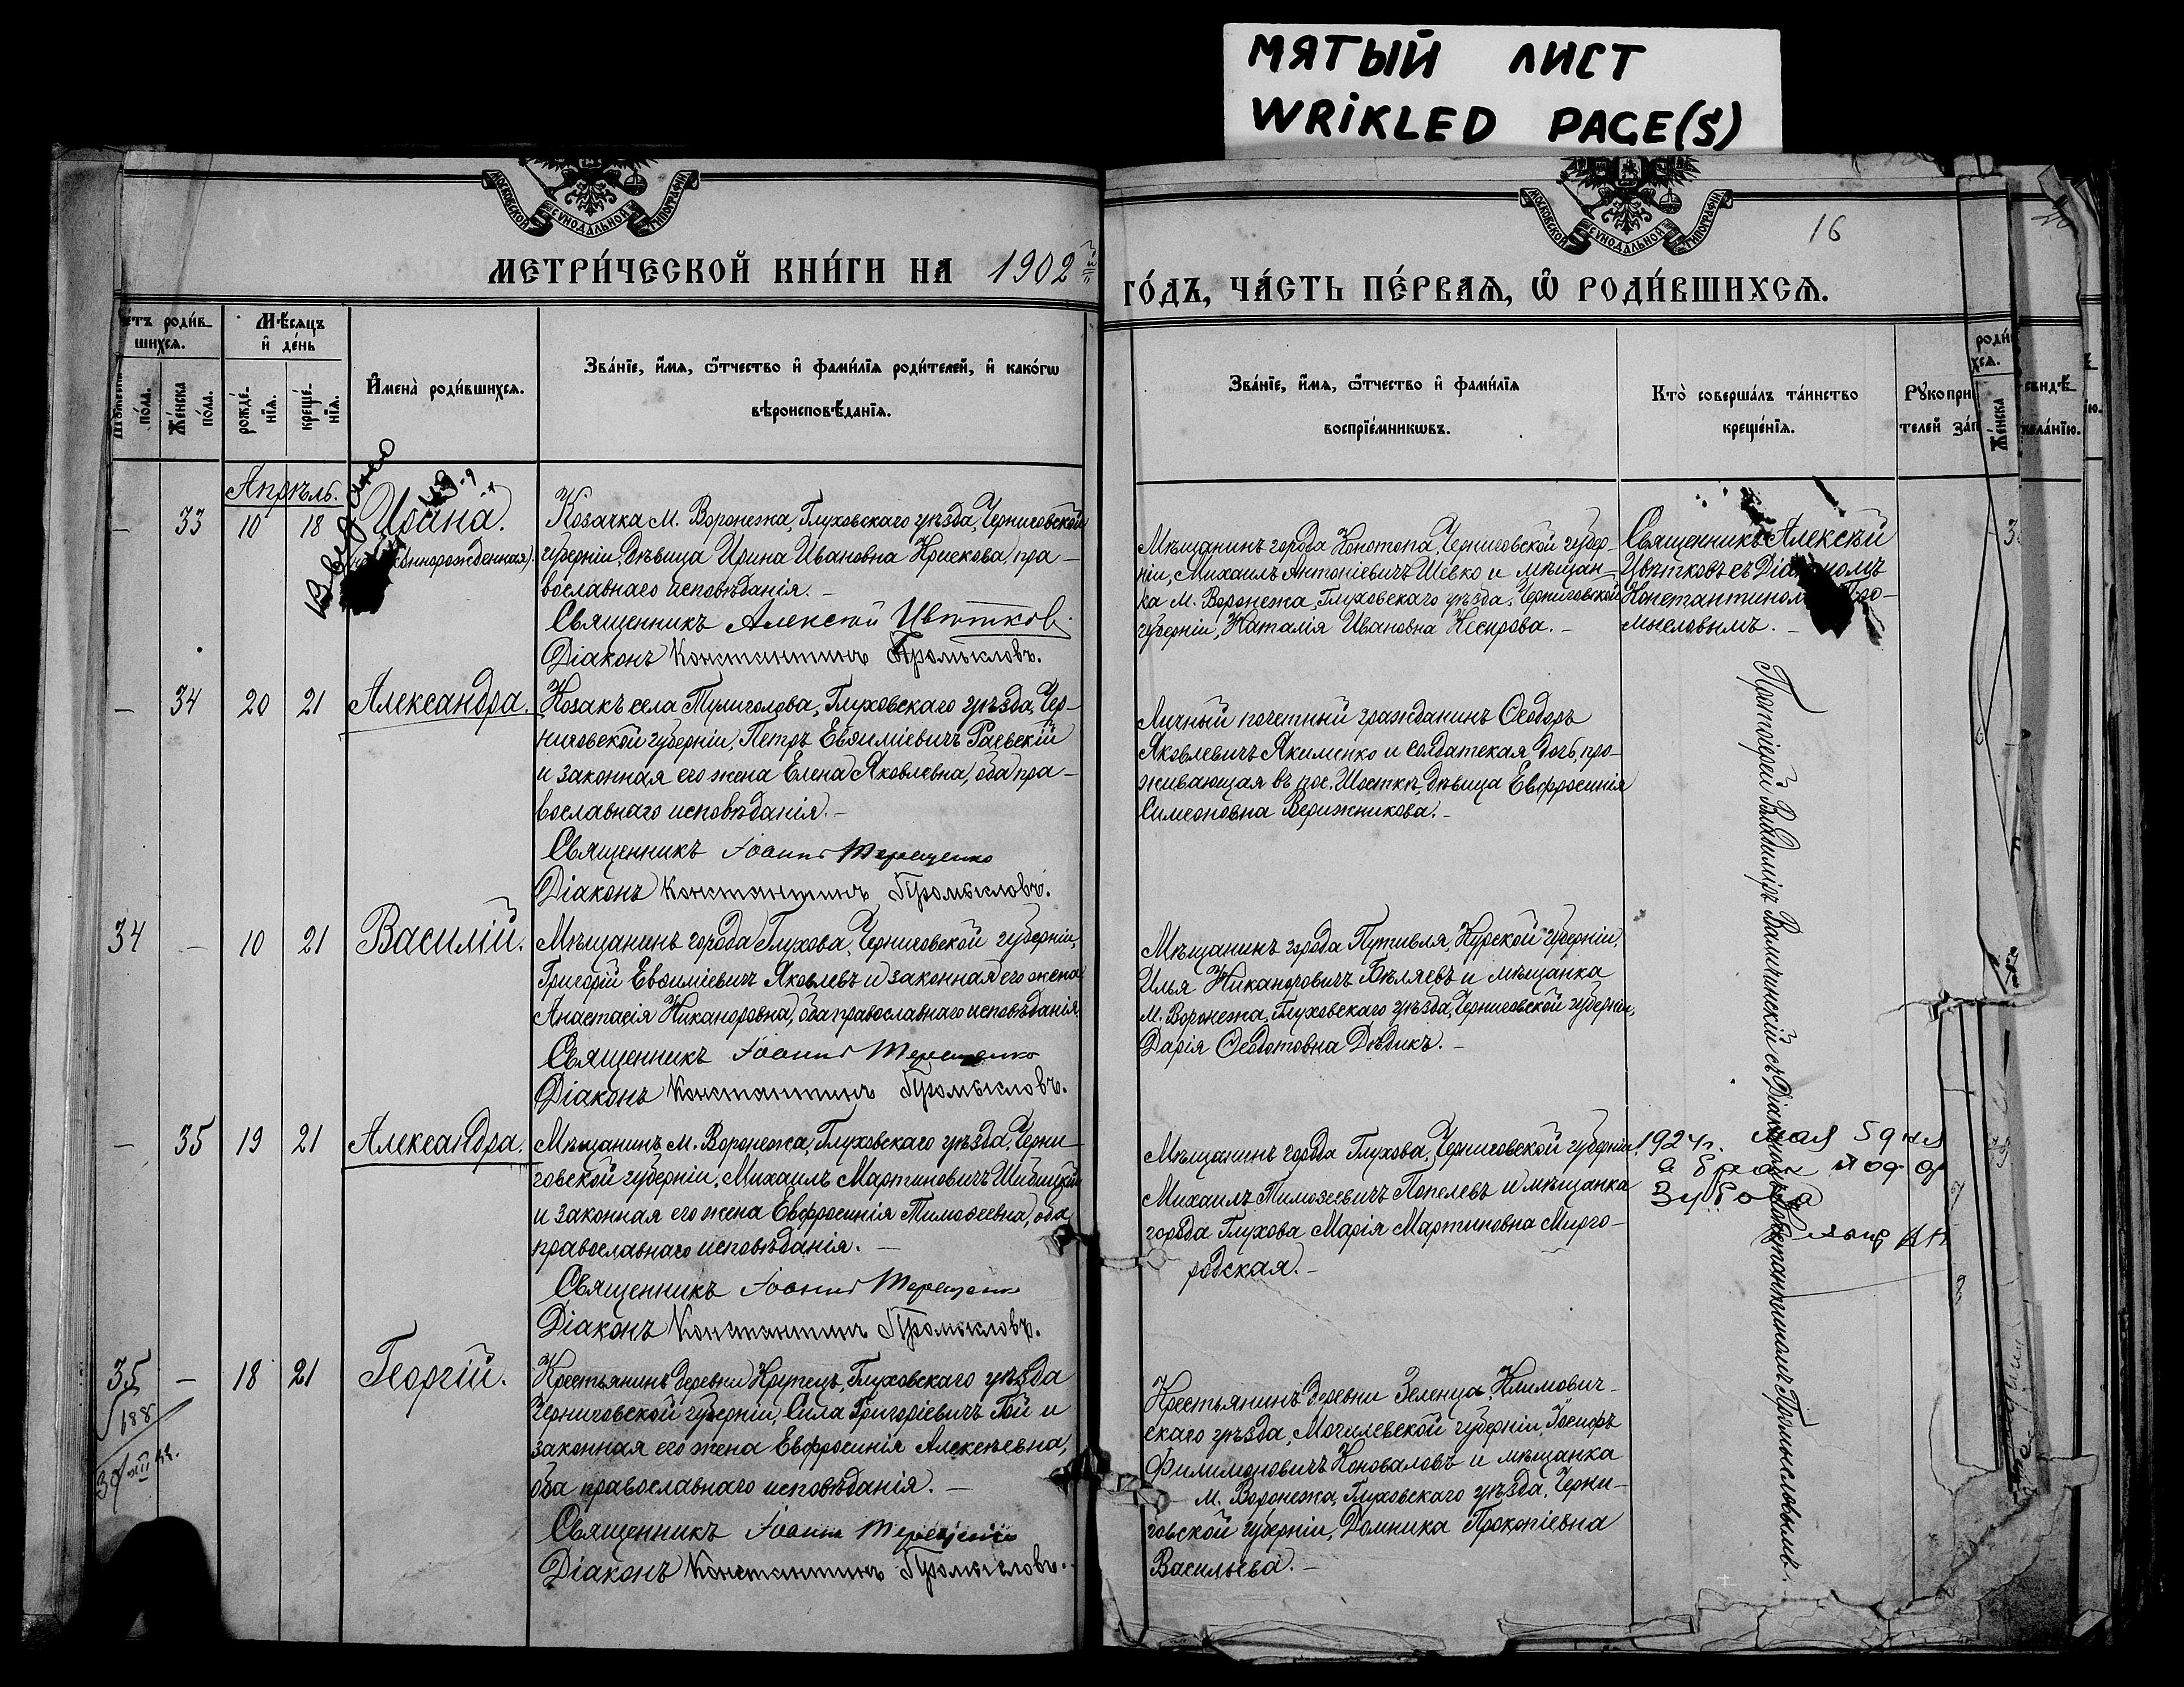 МЯТЫЙ ЛИСТ
WRIKLED PAGE(S)
МОСКОВСКОЙ СѴНОДАЛЬНОЙ ТИПОГРАФІИ
МЕТРИ́ЧЕСКОЙ КНИ́ГИ НА 1902 й
роди́в-
шихся.
Мѣ́сяцъ
и҆ де́нь
по́ла.
Же́нска
по́ла.
рожде́-
нїя.
креще́-
нїя.
И҆мена̀ роди́вшихся.
Зва́нїе, и҆́мя, ѻ҆́тчество и҆ фами́лїя роди́телей, и҆ како́гѡ
вѣроисповѣ́данїя.
Апрѣль.
— 33 10 18
Козачка м. Воронежа, Глуховскаго уѣзда, Черниговской
губерніи, дѣвица Ирина Ивановна Крискова, пра-
вославнаго исповѣданія. —
Священникъ Алексій Цвѣтковъ
Діаконъ Константинъ Промысловъ.
— 34 20 21 Александра.
Козакъ села Тулиголова, Глуховскаго уѣзда, Чер-
ниговской губерніи, Петръ Евѳиміевичъ Раевскій
и законная его жена Елена Яковлевна, оба пра-
вославнаго исповѣданія. —
Священникъ Іоаннъ Терещенко
Діаконъ Константинъ Промысловъ.
34 — 10 21 Василій.
Мѣщанинъ города Глухова, Черниговской губерніи,
Григорій Евѳиміевичъ Яковлевъ и законная его жена
Анастасія Никаноровна, оба православнаго исповѣданія
Священникъ Іоаннъ Терещенко
Діаконъ Константинъ Промысловъ.
— 35 19 21 Александра.
Мѣщанинъ м. Воронежа, Глуховскаго уѣзда, Черни-
говской губерніи, Михаилъ Мартиновичъ
и законная его жена Евфросинія Тимоѳеевна, оба
православнаго исповѣданія. —
Священникъ Іоаннъ Терещенко
Діаконъ Константинъ Промысловъ.
35 — 18 21 Георгій.
Крестьянинъ деревни Крупецъ, Глуховскаго уѣзда
Черниговской губерніи, Сила Григоріевичъ Гой и
законная его жена Евфросинія Алексѣевна,
оба православнаго исповѣданія. —
Священникъ Іоаннъ Терещенко
Діаконъ Константинъ Промысловъ.
МОСКОВСКОЙ СѴНОДАЛЬНОЙ ТИПОГРАФІИ
16
ГО́ДЪ, ЧА́СТЬ ПЕ́РВАЯ, Ѽ РОДИ́ВШИХСЯ.
Зва́нїе, и҆́мя, ѻ҆́тчество и҆ фами́лїя
воспрїе́мникѡвъ.
Кто̀ соверша́лъ та́инство
креще́нїя.
Рꙋкопри
телей за́п
Же́нска
Мѣщанинъ города Конотопа, Черниговской губер-
ніи, Михаилъ Антоніевичъ Шевко и мѣщан-
ка м. Воронежа, Глуховскаго уѣзда, Черниговской
губерніи, Наталія Ивановна —
Священникъ Алексѣй
Цвѣтковъ съ Діакономъ
Константиномъ Про-
мысловымъ. —
Личный почетный гражданинъ Ѳеодоръ
Яковлевичъ Якименко и солдатская дочь, про-
живающая въ пос. Шосткѣ, дѣвица Евфросинія
Симеоновна Верижникова. —
Мѣщанинъ города Путивля, Курской губерніи,
Илья Никаноровичъ Бѣляевъ и мѣщанка
м. Воронежа, Глуховскаго уѣзда, Черниговской губерніи,
Дарія Ѳеодотовна Довдикъ. —
Мѣщанинъ города Глухова, Черниговской губерніи,
Михаилъ Тимоѳеевичъ Попелевъ и мѣщанка
города Глухова Марія Мартиновна Мирго-
родская. —
Крестьянинъ деревни Зеленца, Климович-
скаго уѣзда, Могилевской губерніи, Іосифъ
Филимоновичъ Коноваловъ и мѣщанка
м. Воронежа, Глуховскаго уѣзда, Черни-
говской губерніи, Домника Прокопіевна
Васильева. —
Протоіерей Владиміръ съ Діакономъ Константиномъ Промысловымъ.
1924 г. мая 5 дня